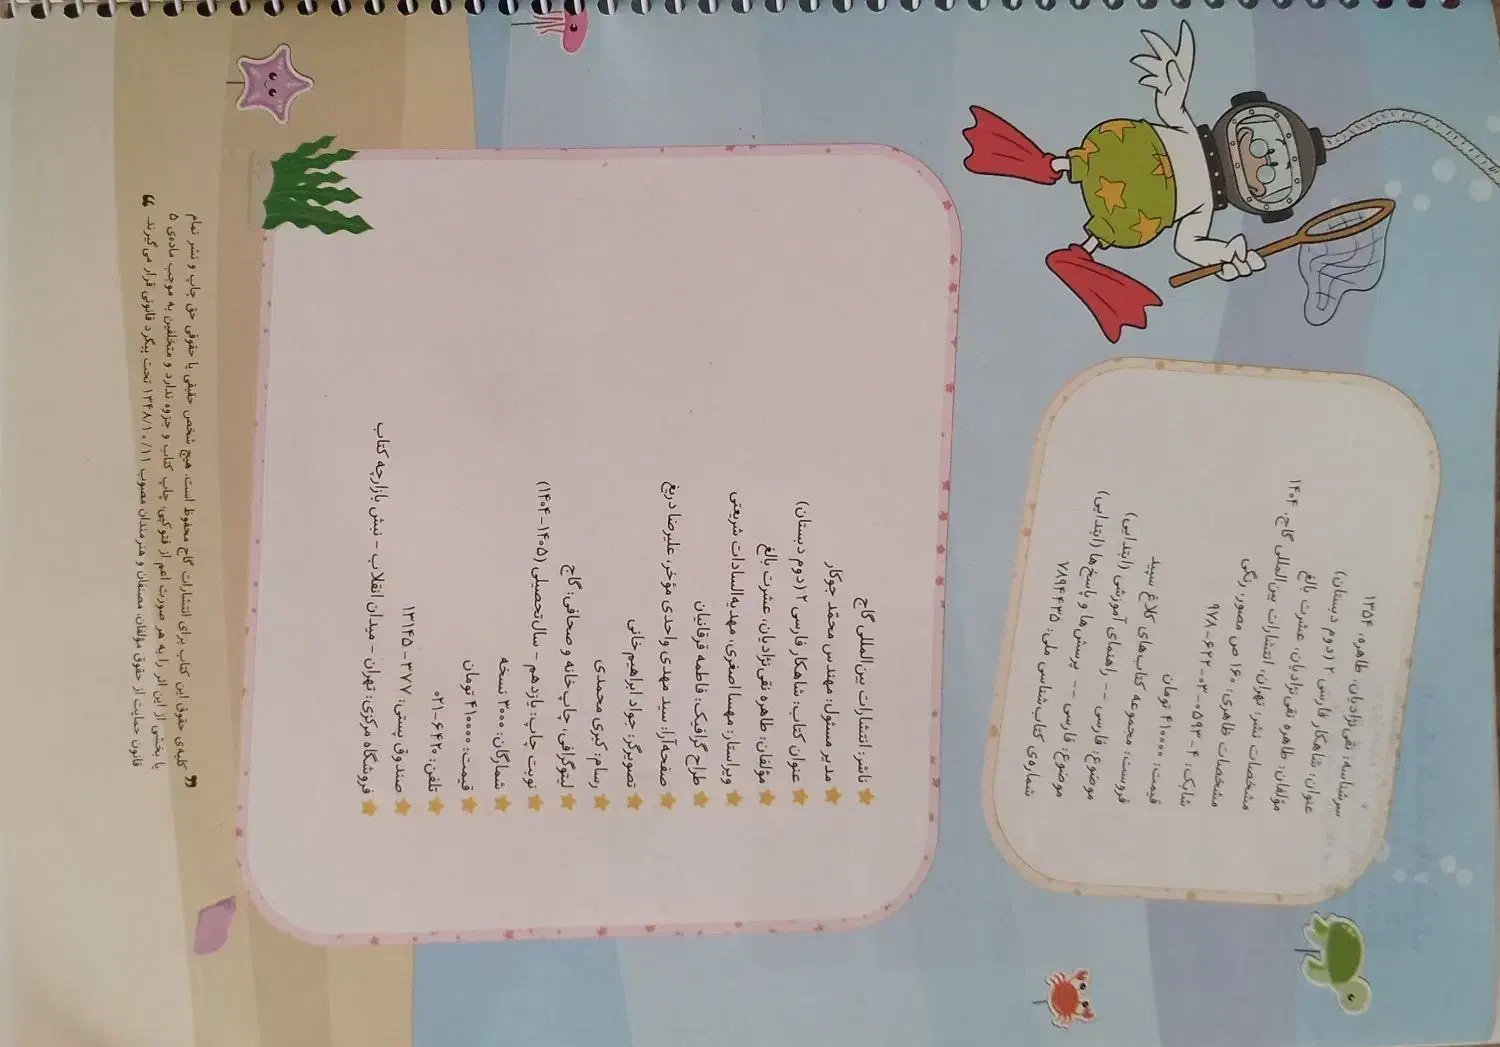 سرشناسه: نقی‌نژادیان، طاهره، ۱۳۵۴
عنوان: شاهکار فارسی ۲ (دوم دبستان)
مؤلفان: طاهره نقی‌نژادیان، عشرت بالغ
مشخصات نشر: تهران، انتشارات بین‌المللی گاج، ۱۴۰۴
مشخصات ظاهری: ۱۶۰ ص مصور، رنگی
شابک: ۴-۰۵۹۳-۰۳-۶۲۲-۹۷۸
قیمت: ۴۱۰۰۰۰ تومان
فروست: مجموعه کتاب‌های کلاغ سپید
موضوع: فارسی -- راهنمای آموزشی (ابتدایی)
موضوع: فارسی -- پرسش‌ها و پاسخ‌ها (ابتدایی)
شماره‌ی کتاب‌شناسی ملی: ۷۸۹۴۴۳۵
ناشر: انتشارات بین‌المللی گاج
مدیر مسئول: مهندس محمّد جوکار
عنوان کتاب: شاهکار فارسی ۲ (دوم دبستان)
مؤلفان: طاهره نقی‌نژادیان، عشرت بالغ
ویراستار: مهسا اصغری، مهدیه‌السادات شریعتی
طراح گرافیک: فاطمه قرقانیان
صفحه‌آرا: سید مهدی واحدی مؤخر، علیرضا دریغ
تصویرگر: جواد ابراهیم‌خانی
رسام: کبری محمدی
لیتوگرافی، چاپ‌خانه و صحافی: گاج
نوبت چاپ: یازدهم - سال‌تحصیلی (۱۴۰۵-۱۴۰۴)
شمارگان: ۳۰۰۰ نسخه
قیمت: ۴۱۰۰۰۰ تومان
تلفن: ۶۴۲۰-۰۲۱
صندوق پستی: ۳۷۷-۱۳۱۴۵
فروشگاه مرکزی: تهران - میدان انقلاب - نبش بازارچه کتاب
کلیه‌ی حقوق این کتاب برای انتشارات گاج محفوظ است. هیچ شخص حقیقی یا حقوقی حق چاپ و نشر تمام
یا بخشی از این اثر را به هر صورت اعم از فتوکپی، چاپ کتاب و جزوه ندارد و متخلفین به موجب ماده‌ی ۵
قانون حمایت از حقوق مؤلفان، مصنفان و هنرمندان مصوب ۱۳۴۸/۱۰/۱۱ تحت پیگرد قانونی قرار می‌گیرند.